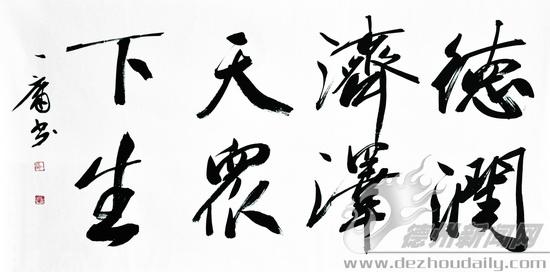 德濟天下
潤澤眾生
一庸书
德州新闻网
www.dezhoudaily.com